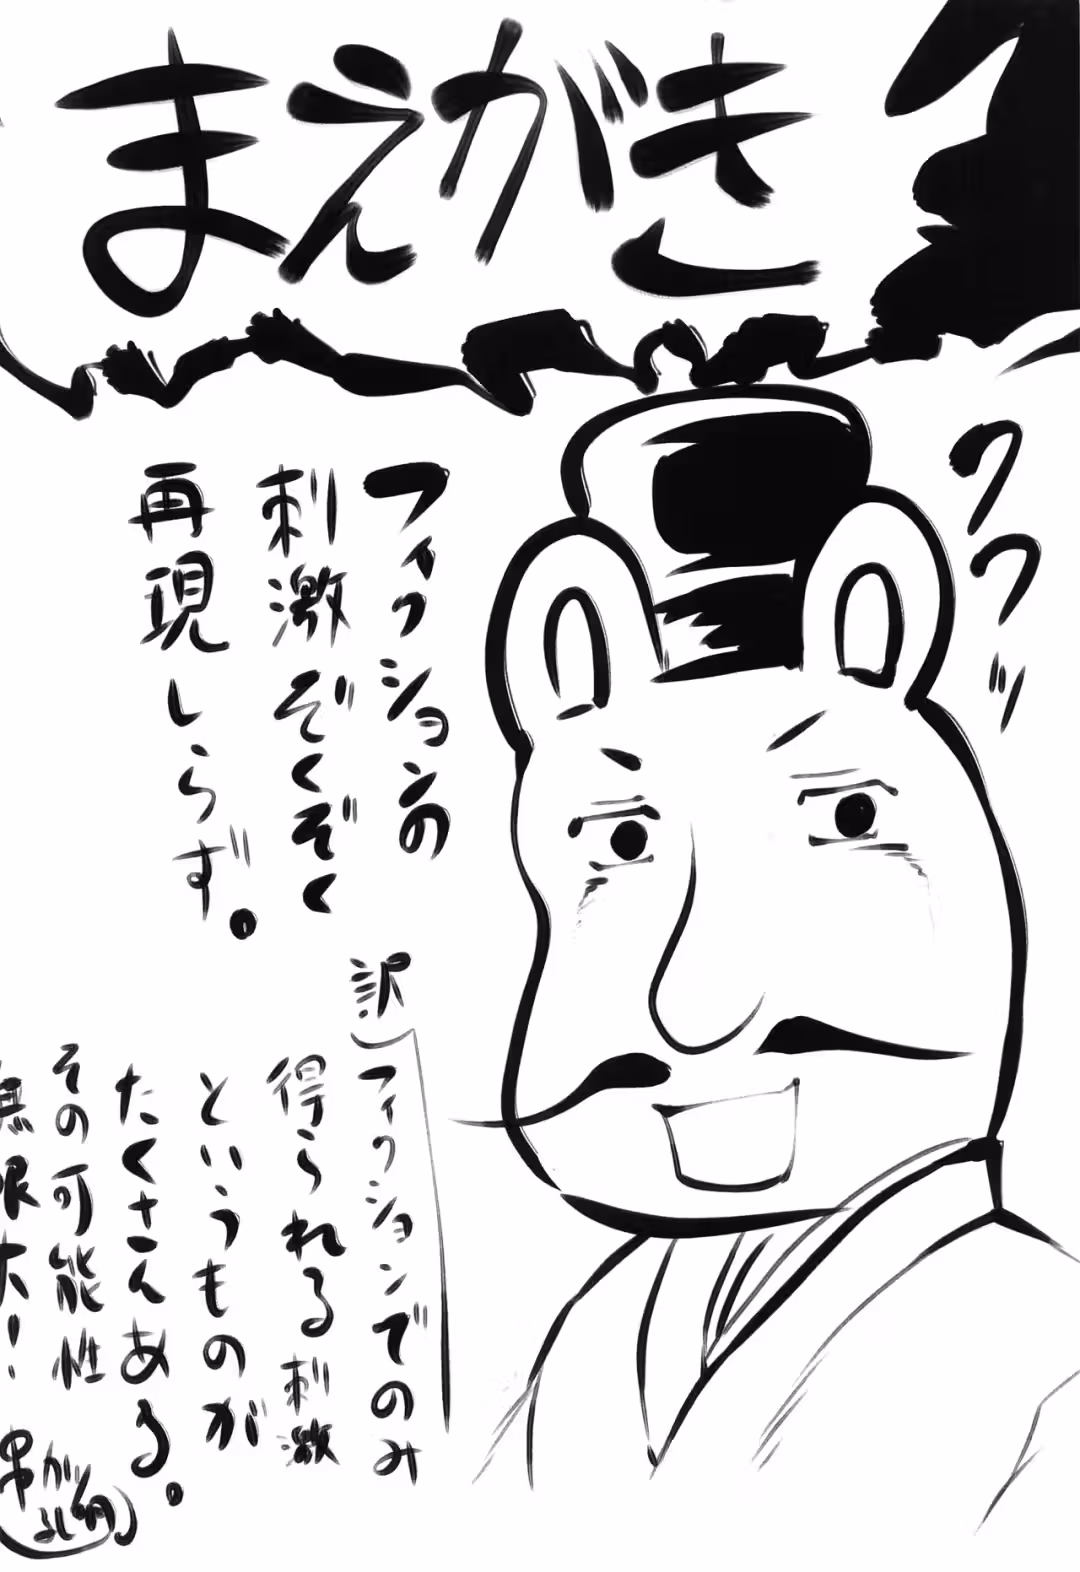 まえがき
クワワッ
フィクションの
刺激ぞくぞく
再現しらず。
訳)フィクションでのみ
得られる刺激
というものが
たくさんある。
その可能性
無限大!
串かつ